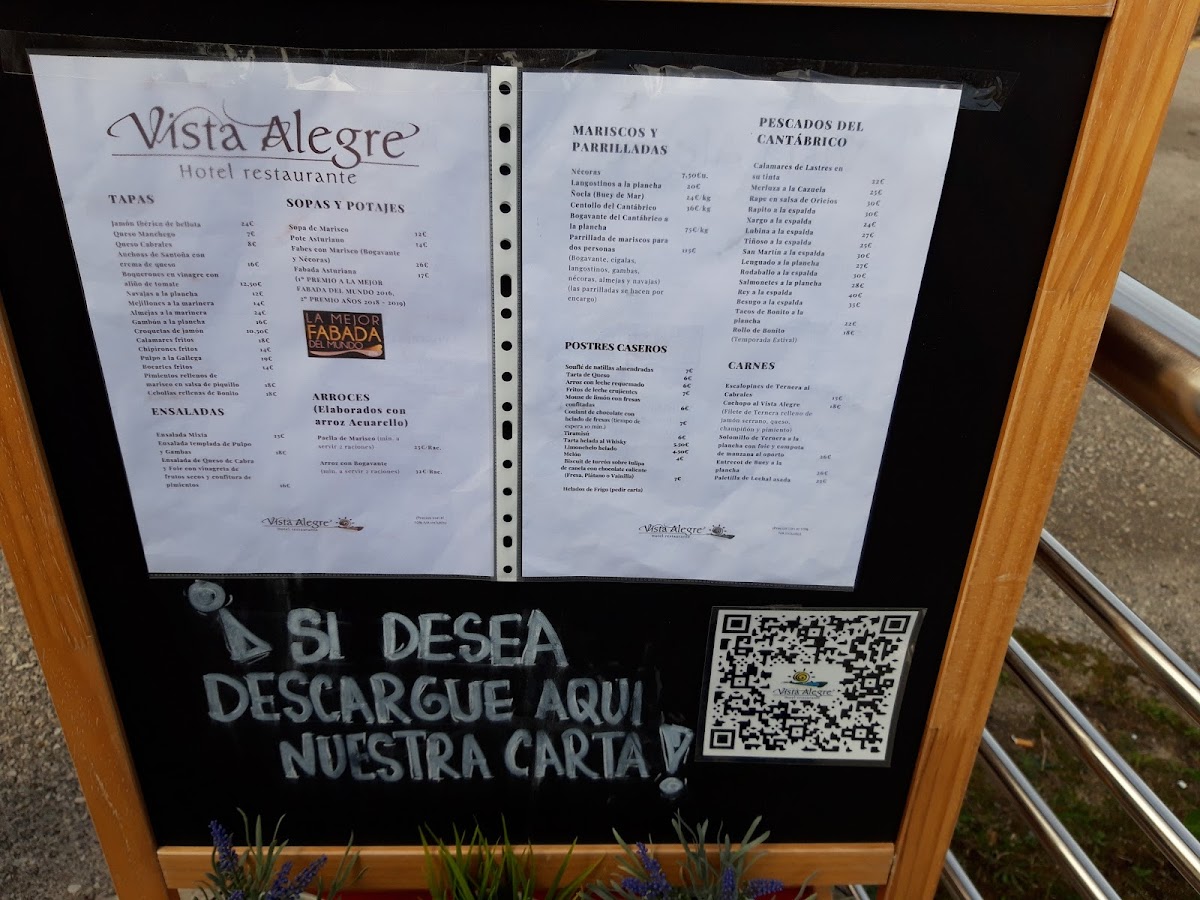 Vista Alegre
Hotel restaurante
TAPAS
Jamón Ibérico de bellota 24€
Queso Manchego 7€
Queso Cabrales 8€
Anchoas de Santoña con
crema de queso 16€
Boquerones en vinagre con
aliño de tomate 12,50€
Navajas a la plancha 12€
Mejillones a la marinera 14€
Almejas a la marinera 24€
Gambón a la plancha 16€
Croquetas de jamón 10,50€
Calamares fritos 18€
Chipirones fritos 14€
Pulpo a la Gallega 19€
Bocartes fritos 14€
Pimientos rellenos de
marisco en salsa de piquillo 18€
Cebollas rellenas de Bonito 18€
ENSALADAS
Ensalada Mixta 13€
Ensalada templada de Pulpo
y Gambas 18€
Ensalada de Queso de Cabra
y Foie con vinagreta de
frutos secos y confitura de
pimientos 16€
SOPAS Y POTAJES
Sopa de Marisco 12€
Pote Asturiano 14€
Fabes con Marisco (Bogavante
y Nécoras) 26€
Fabada Asturiana 17€
(1º PREMIO A LA MEJOR
FABADA DEL MUNDO 2016,
2º PREMIO AÑOS 2018 - 2019)
LA MEJOR
FABADA
DEL MUNDO
ARROCES
(Elaborados con
arroz Acuarello)
Paella de Marisco (min. a
servir 2 raciones) 23€/Rac.
Arroz con Bogavante
(min. a servir 2 raciones) 32€/Rac.
Vista Alegre
Hotel restaurante
MARISCOS Y
PARRILLADAS
Nécoras 7,50€u.
Langostinos a la plancha 20€
Ñocla (Buey de Mar) 24€/kg
Centollo del Cantábrico 36€/kg
Bogavante del Cantábrico a
la plancha 75€/kg
Parrillada de mariscos para
dos personas 115€
(Bogavante, cigalas,
langostinos, gambas,
nécoras, almejas y navajas)
(las parrilladas se hacen por
encargo)
POSTRES CASEROS
Souflé de natillas almendradas 7€
Tarta de Queso 6€
Arroz con leche requemado 6€
Fritos de leche crujientes 7€
Mouse de limón con fresas
confitadas 6€
Coulant de chocolate con
helado de fresas (tiempo de
espera 10 min.) 7€
Tiramisú 6€
Tarta helada al Whisky 5,50€
Limonchelo helado 4,50€
Melón 4€
Biscuit de turrón sobre tulipa
de canela con chocolate calicate
(Fresa, Plátano o Vainilla) 7€
Helados de Frigo (pedir carta)
PESCADOS DEL
CANTÁBRICO
Calamares de Lastres en
su tinta 22€
Merluza a la Cazuela 25€
Rape en salsa de Oricios 30€
Rapito a la espalda 30€
Xargo a la espalda 24€
Lubina a la espalda 27€
Tiñoso a la espalda 25€
San Martín a la espalda 30€
Lenguado a la plancha 27€
Rodaballo a la espalda 30€
Salmonetes a la plancha 28€
Rey a la espalda 40€
Besugo a la espalda 35€
Tacos de Bonito a la
plancha 22€
Rollo de Bonito 18€
(Temporada Estival)
CARNES
Escalopines de Ternera al
Cabrales 15€
Cachopo al Vista Alegre 18€
(Filete de Ternera relleno de
jamón serrano, queso,
champiñón y pimiento)
Solomillo de Ternera a la
plancha con foie y compota
de manzana al oporto 26€
Entrecot de Buey a la
plancha 26€
Paletilla de Lechal asada 25€
Vista Alegre
Hotel restaurante
¡ SI DESEA
DESCARGUE AQUI
NUESTRA CARTA !
Vista Alegre